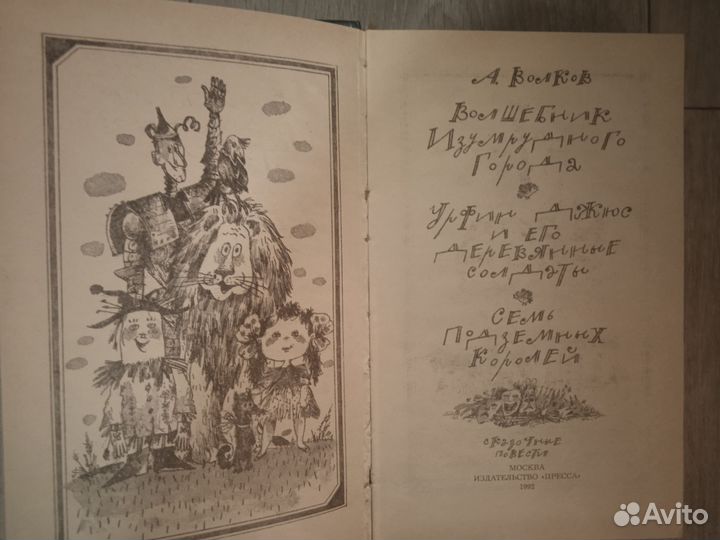 А. Волков
Волшебник
Изумрудного
Города
Урфин Джюс
и его
деревянные
солдаты
Семь
подземных
королей
сказочные
повести
МОСКВА
ИЗДАТЕЛЬСТВО «ПРЕССА»
1992
Avito